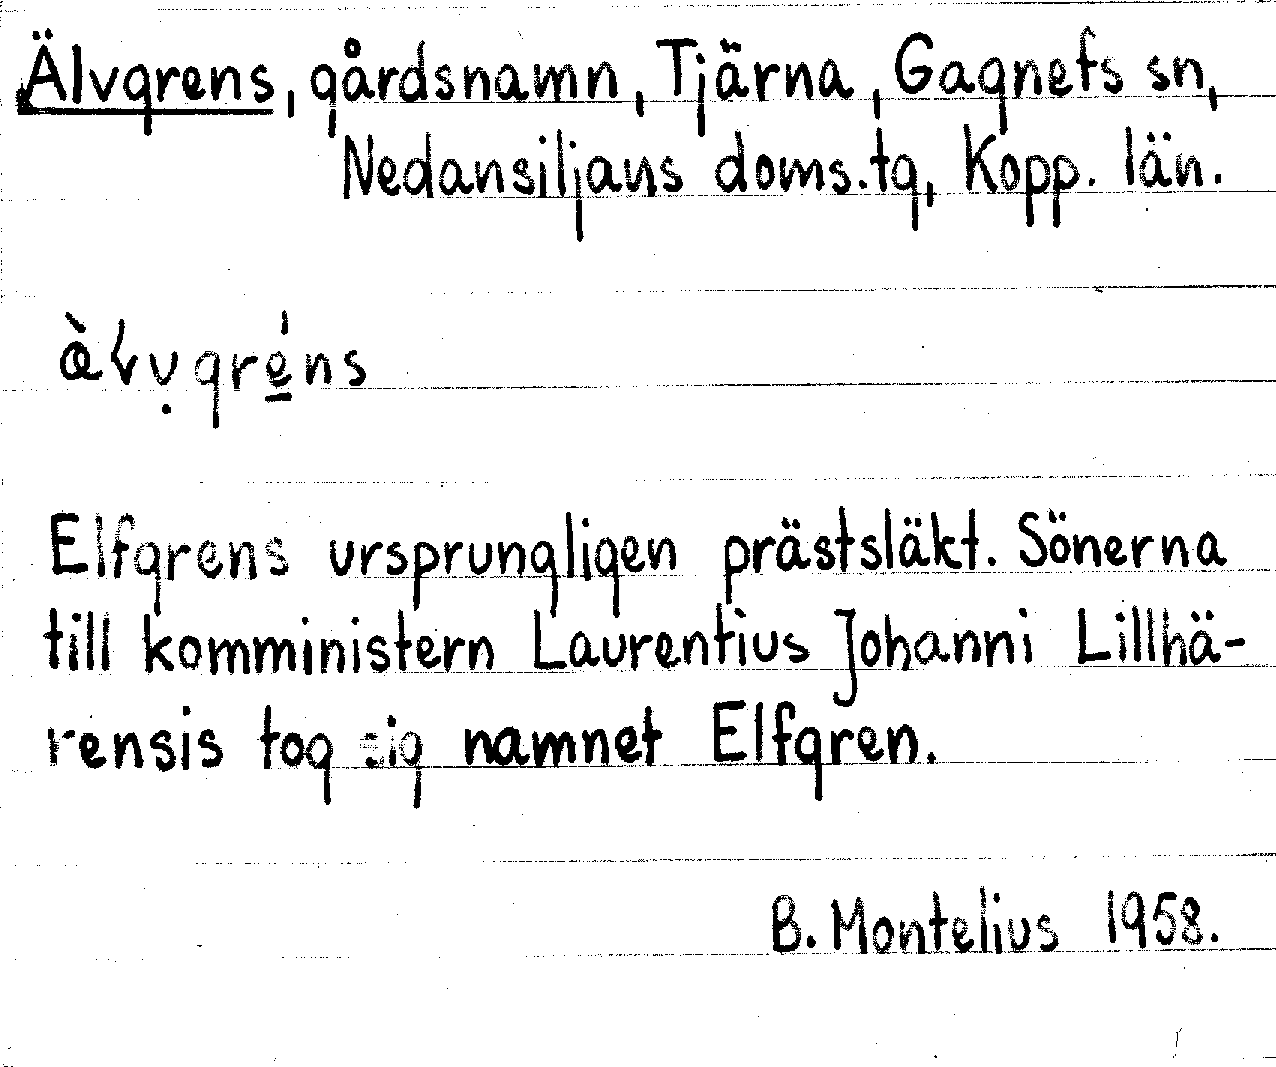 Älvgrens, gårdsnamn, Tjärna, Gagnefs sn,
Nedansiljans doms.tg, Kopp. län.
Elfgrens ursprungligen prästsläkt. Sönerna
till komministern Laurentius Johanni Lillhä-
rensis tog sig namnet Elfgren.
B. Montelius 1958.